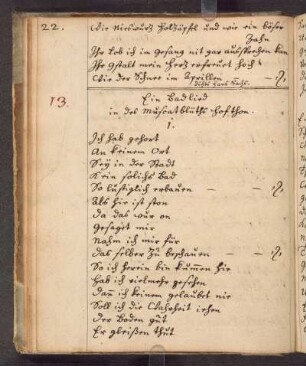 22.
die Nieswurz holzäpfel und wie ein böser
Zahn
Ihr Lob ich in Gesang nit gar aussprechen kun
Ihr Gstalt mein Herz erfreuet hoch
Wie der Schnee im Aprillen
dicht Hans Sachs.
13.
Ein Badlied
in des Muscatblüths Hofthon
1.
Ich hab gehort
An keinem Ort
Seÿ in der Stadt
Kein solichs Bad
So lustiglich erbauen
Als hie ist ston
Da das wur on
Gesaget mir
Nahm ich mir für
das selber zu beschauen
So ich herein bin kummen hie
hab ich vielmehr gesehen
dann ich keinem gelaubet nie
Soll ich die Wahrheit iehen
der Boden gut
Er gleißen thut